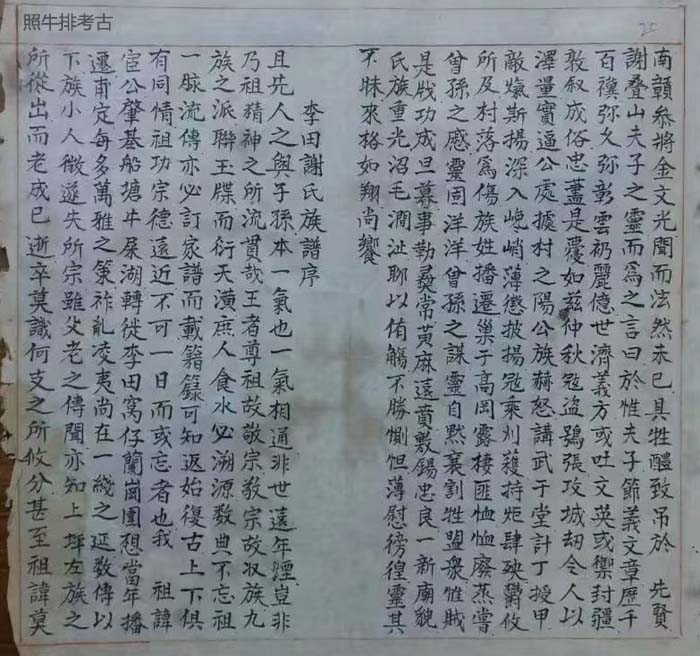 照牛排考古
25
南贛參將金文光聞而泫然未已具牲醴致吊於 先賢
謝叠山夫子之靈而爲之言曰於惟夫子節義文章歷千
百禩弥久弥彰雲礽麗億世濟義方或吐文英或禦封疆
敦叙成俗忠藎是憂如茲仲秋寇盗鴞張攻城刼令人以
澤量實逼公處據村之陽公族赫怒講武于堂計丁授甲
敵愾斯揚深入巉峭薄懲披揚寇乘刈穫持炬肆殃爵攸
所及村落爲傷族姓播遷巢于高岡露棲匪恤恤廢蒸嘗
曾孫之感靈囿洋洋曾孫之謀靈自黙襄割牲盟衆惟賊
是戕功成旦暮事勒彝常黄麻遠賁敷錫忠良一新廟貌
氏族重光沼毛澗沚聊以侑觴不勝惻怛薄慰徬徨靈其
不昧來格如翔尚饗
李田謝氏族譜序
且先人之與子孫本一氣也一氣相通非世遠年湮豈非
乃祖精神之所流貫哉王者尊祖故敬宗敬宗故収族九
族之派聯玉牒而衍天潢庶人食水必溯源数典不忘祖
一脉流傳亦必訂家譜而載籍録可知返始復古上下俱
有同情祖功宗德遠近不可一日而或忘者也我 祖諱
宦公肇基船塘牛屎湖轉徙李田窩仔蘭崗圍想當年播
遷甫定每多萬雅之策祚亂凌夷尚在一綫之延数傳以
下族小人微遂失所宗雖父老之傳聞亦知上坪左族之
所從出而老成已逝卒莫識何支之所攸分甚至祖諱莫